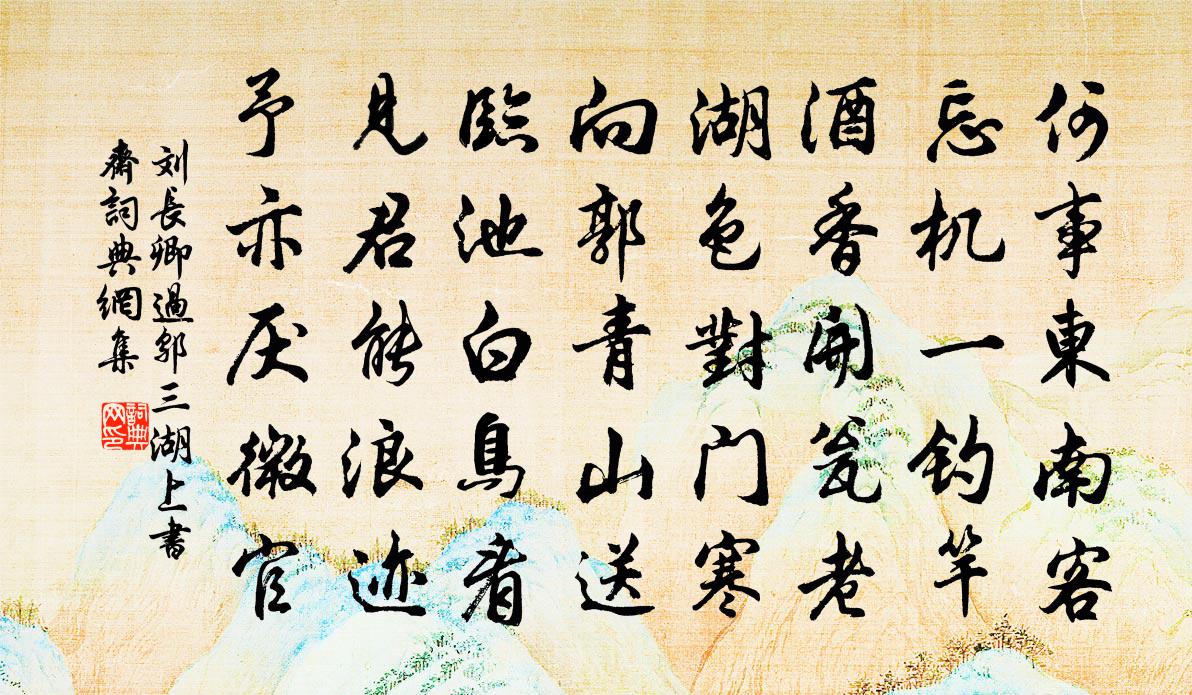 何事東南客
忘机一钓竿
酒香開瓮老
湖色對门寒
向郭青山送
臨池白鳥看
見君能浪迹
予亦厌微官
刘長卿過鄔三湖上書
齋詞典網集
詞典
网印